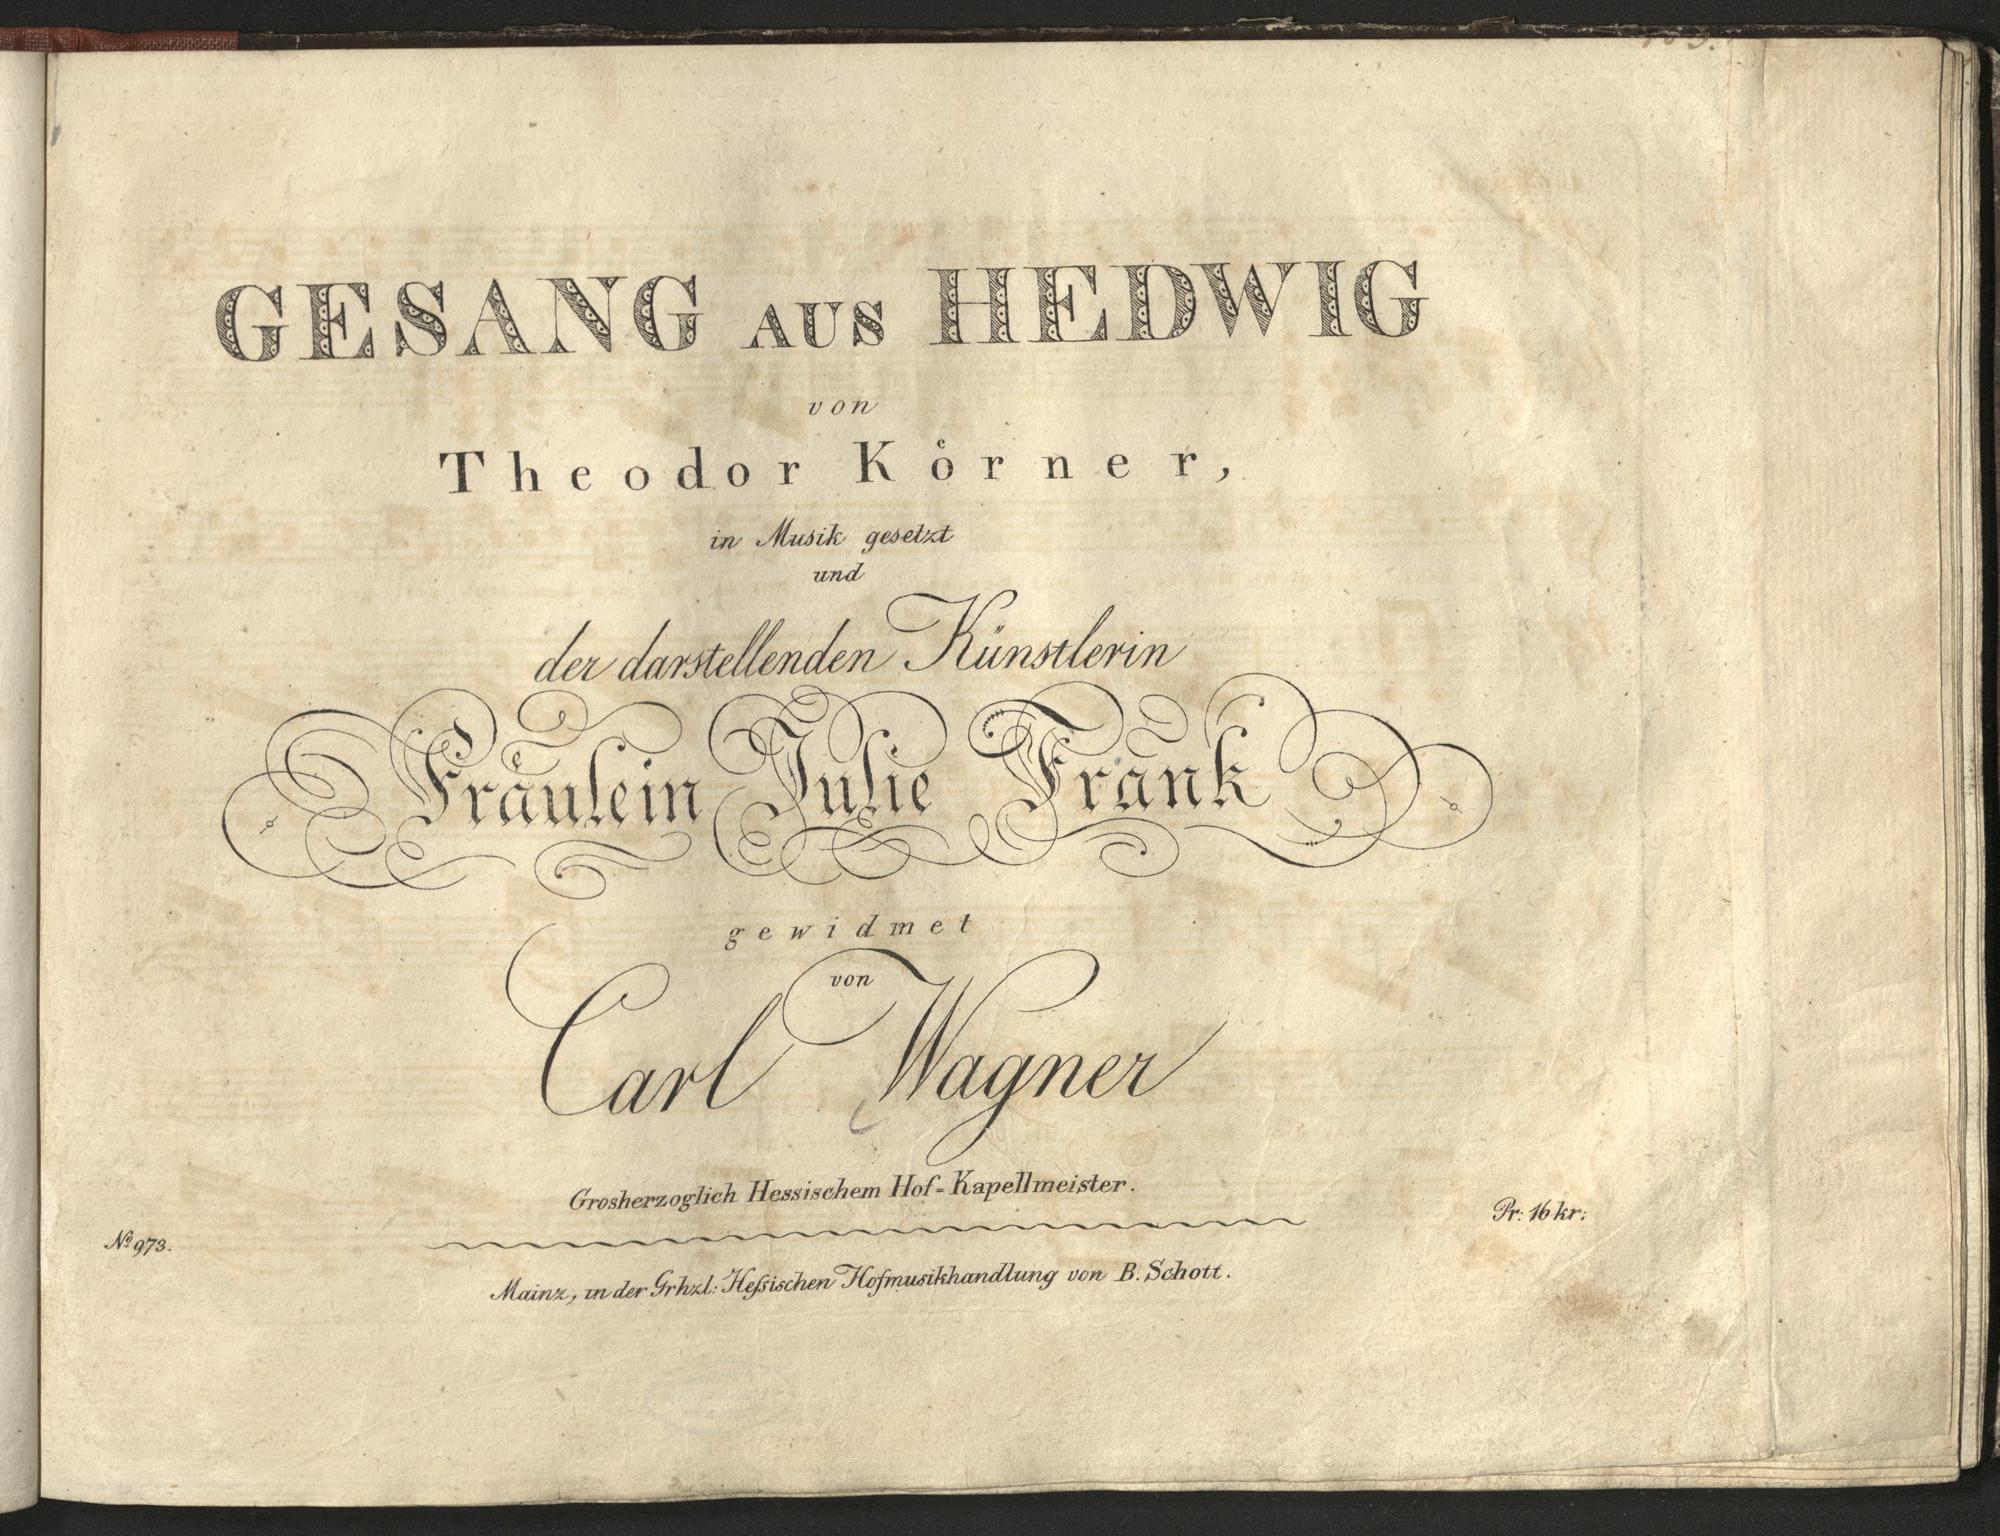 GESANG AUS HEDWIG
von
Theodor Koͤrner,
in Musik gesetzt
und
der darstellenden Künstlerin
Fraͤulein Julie Frank
gewidmet
von
Carl Wagner
Grosherzoglich Hessischem Hof-Kapellmeister.
Nº 973.
Pr: 16 kr:
Mainz, in der Grhzl: Heſsischen Hofmusikhandlung von B. Schott.